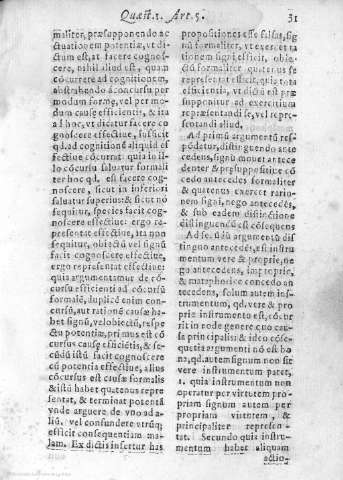 Quæst. 1. Art. 5.
31
maliter, præsupponendo ac
ctuationem potentiæ, vt di-
ctum est, at facere cognos-
cere, nihil aliud est, quam
cōcurrere ad cognitionem,
abstrahendo à concursu per
modum formę, vel per mo-
dum causę efficientis, & ita
al hoc, vt dicatur facere co
gnoscere effectiue, sufficit
qd. ad cognitionē aliquid ef
fectiue cōcurrat: quia in il-
lo cōcursu saluatur formali
ter hoc qd. est facere cog-
noscere, sicut in inferiori
saluatur superius: & sicut nō
sequitur, species facit cog-
noscere effectiue: ergo re-
presentat effectiue, ita non
sequitur, obiectū vel signū
facit cognoscere effectiue,
ergo representat effectiue:
quia argumentamur de cō-
cursu efficienti ad cōcursū
formalē, duplicē enim con-
cursū, aut rationē causæ ha-
bet signū, vel obiectū, respe
ctu potentiæ, primus est cō
cursus causę efficiētis, & se-
cūdū istū facit cognoscere
cū potentia effectiue, alius
cōcursus est causæ formalis
& istō habet quatenus repre
sentat, & terminat potentiā
vnde arguere de vno ad a-
liū, vel confundere vtrūq;
efficit consequentiam ma-
lam. Ex dictis infertur has
propositiones esse falsas, sig
nū formaliter, vt exercet ra
tionem signi efficit, obie-
ctū formaliter quatenus re
presentat efficit, quia tota
efficientia, vt dictū est præ
supponitur ad exercitium
representandi se, vel repre-
sentandi aliud.
Ad primū argumētū res-
pōdatur, distinguendo ante
cedens, signū mouet antece
denter & presuppositiue cō
cedo antecedēs formaliter
& quatenus exercet ratio-
nem signi, nego antecedēs,
& sub eadem distinctione
distinguendū est cōsequens
Ad secūdū argumētū dis-
tinguo antecedēs, est instru
mentum vere & proprie, ne
go antecedens, improprie,
& metaphorice concedo an
tecedens, solum autem ins-
trumentum, qd. vere & pro
prie instrumento est, cōcur
rit in vnde genere cuo cau-
sa principalis: & ideo cōse-
quētis argumenti nō est bo
na, qd. autem signum non sit
vere instrumentum patet,
1. quia instrumentum non
operatur per virtutem pro-
priam signum autem per
propriam virtutem, &
principaliter represen-
tat. Secundo quia instru-
mentum habet aliquam
actio-